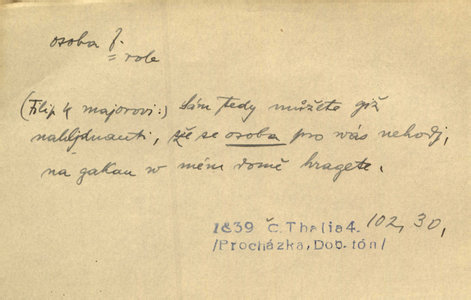 osoba f.
= role
(Filip k majorovi:) Sám tedy můžete giž
nahlídnauti, že se osoba pro wás nehodj,
na gakau w mém domě hragete.
1839 Č. Thalia4. 102, 30,
/Procházka, Dob. tón/